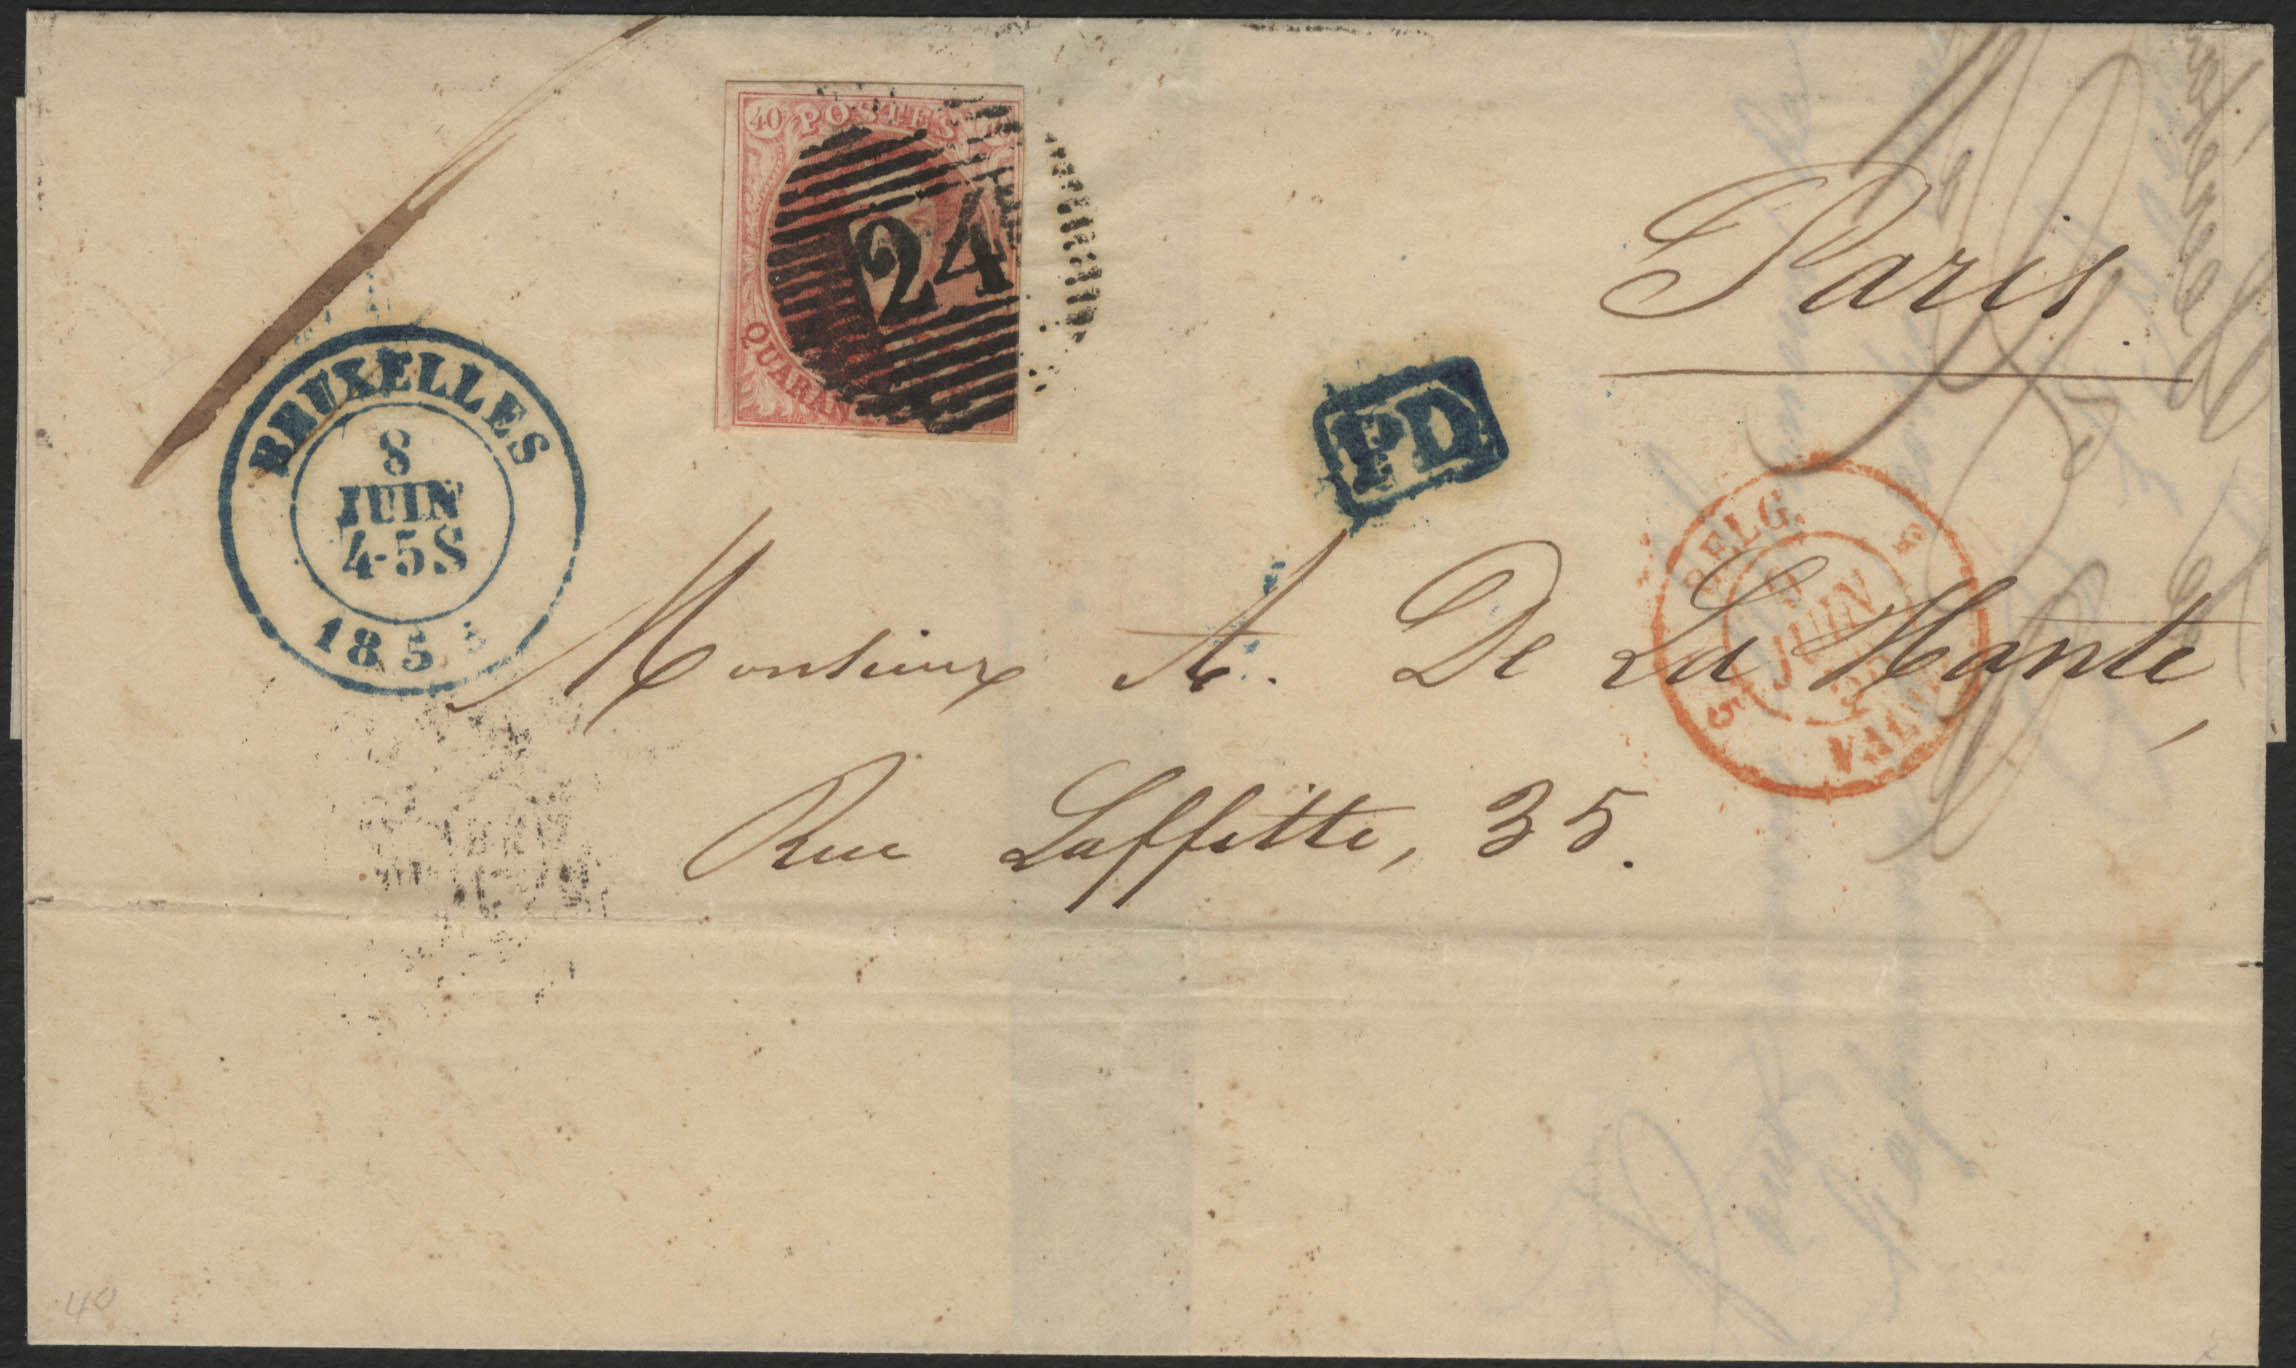 40 POSTES
24
QUARAN
Paris
PD
BRUXELLES
8
JUIN
4-5S
185
BELG.
9
JUIN
5 VAL
Monsieur A. De La Hante,
Rue Laffitte, 35.
40